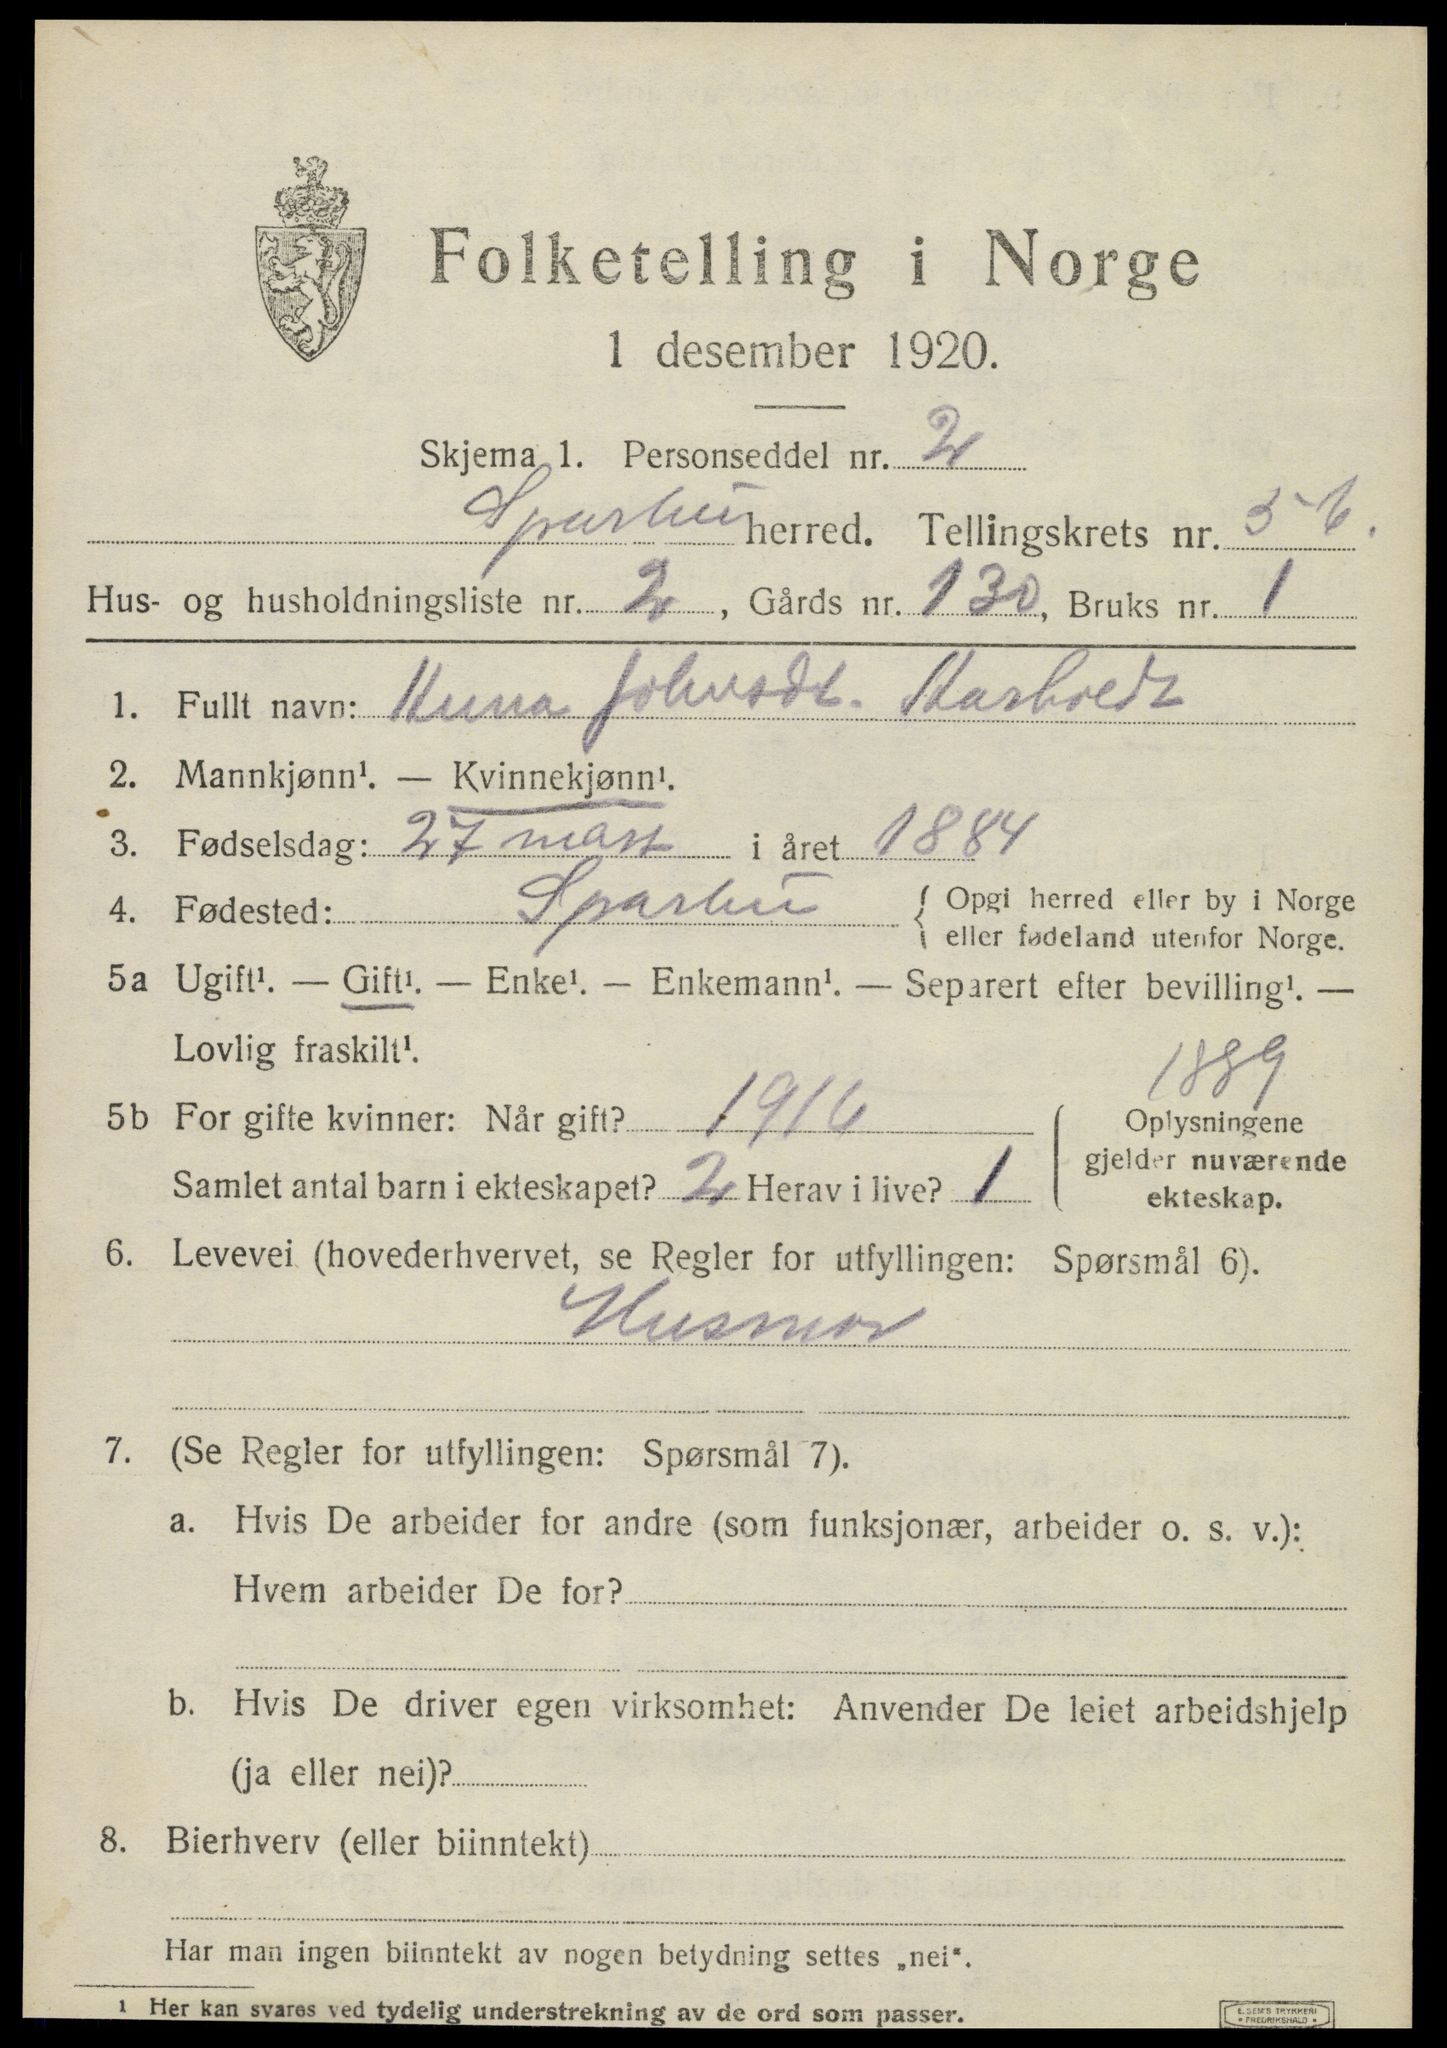 Folketelling i Norge
1 desember 1920.
Skjema 1. Personseddel nr. 2
Sparbu herred. Tellingskrets nr. 5-6.
Hus- og husholdningsliste nr. 2, Gårds nr. 130, Bruks nr. 1
1. Fullt navn: Anna Johnsdt.
2. Mannkjønn¹. — Kvinnekjønn¹.
3. Fødselsdag: 27 mars i året 1884
4. Fødested: Sparbu { Opgi herred eller by i Norge
eller fødeland utenfor Norge.
5a Ugift¹. — Gift¹. — Enke¹. — Enkemann¹. — Separert efter bevilling¹. —
Lovlig fraskilt¹.
1889
5b For gifte kvinner: Når gift? 1916 { Oplysningene
gjelder nuværende
ekteskap.
Samlet antal barn i ekteskapet? 2 Herav i live? 1
6. Levevei (hovederhvervet, se Regler for utfyllingen: Spørsmål 6).
Husmor
7. (Se Regler for utfyllingen: Spørsmål 7).
a. Hvis De arbeider for andre (som funksjonær, arbeider o. s. v.):
Hvem arbeider De for?
b. Hvis De driver egen virksomhet: Anvender De leiet arbeidshjelp
(ja eller nei)?
8. Bierhverv (eller biinntekt)
Har man ingen biinntekt av nogen betydning settes „nei“.
1 Her kan svares ved tydelig understrekning av de ord som passer.
E. SEM'S TRYKKERI
FREDRIKSHALD